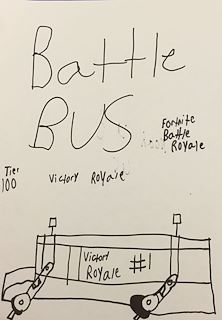 Battle
BUS
Fortnite
Battle
Royale
Tier
100
Victory Royale
Victory
Royale #1